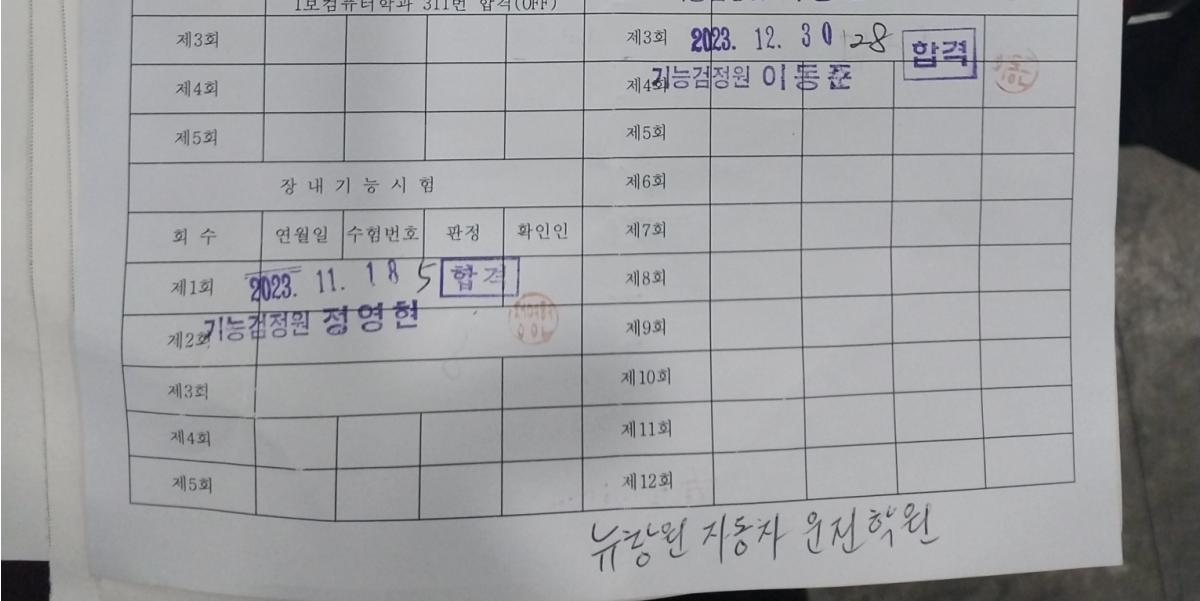 1보컴퓨터학과 311번 합격(OFF)
제3회
제4회
제5회
장 내 기 능 시 험
회 수 연월일 수험번호 판정 확인인
제1회 2023. 11. 18 5 합격
제2회 기능검정원 정영현
제3회
제4회
제5회
제3회 2023. 12. 30 28 합격
제4회 기능검정원 이동준
제5회
제6회
제7회
제8회
제9회
제10회
제11회
제12회
뉴창원 자동차 운전학원